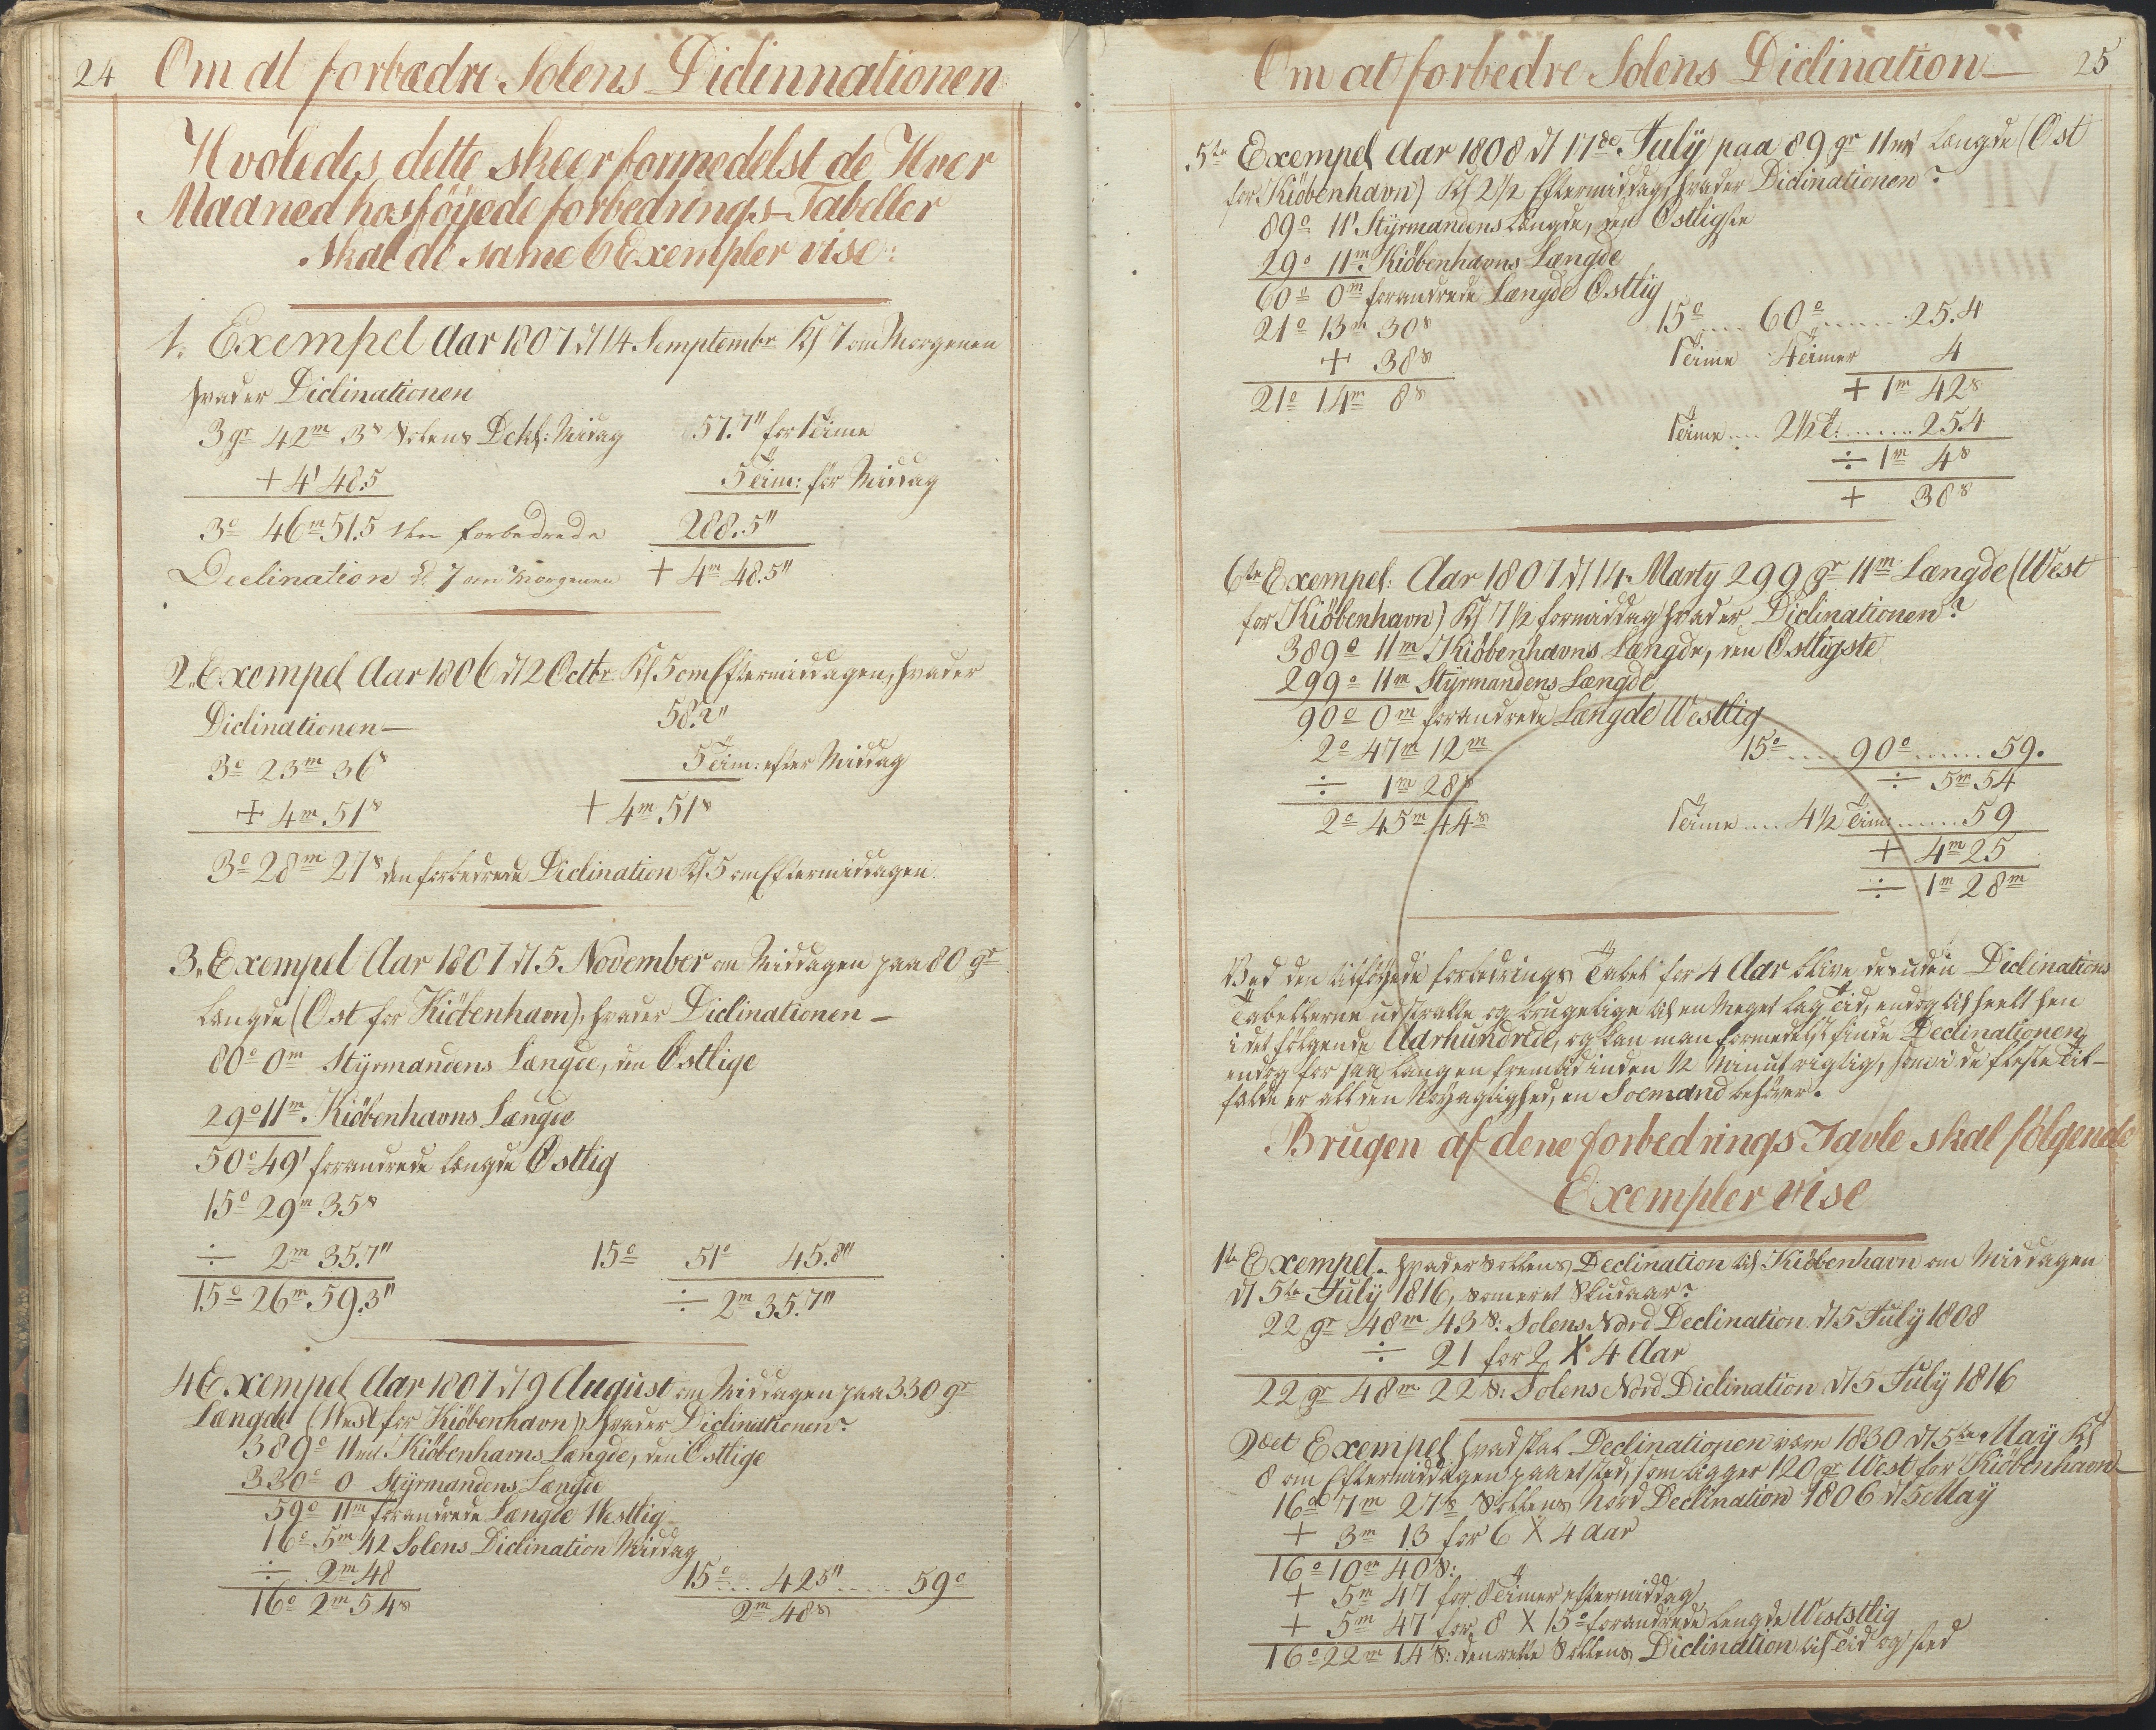 24 Om at forbædre Solens Diclinnationen
Hvoledes dette skeer formedelst de Hver
Maaned hosföyede forbedrings-Tabeller
skal de same 6 Exempler vise:
1. Exempel Aar 1807 d 14 Semptembr Kl 7 om Morgenen
hvad er Diclinationen
3 gr 42m 3s Solens Dekl: Midag 57.7" for 1 Time
+ 4' 48.5 5 Tim: för Middag
3° 46m 51.5 den forbedrede 288.5"
Declination Kl 7 om Morgenen + 4m 48.5"
2. Exempel Aar 1806 d 2 Octbr Kl 5 om Eftermiddagen, hvad er
Diclinationen— 58.2"
3° 23m 36s 5 Tim: efter Middag
+ 4m 51s + 4m 51s
3° 28m 27s den forbedrede Diclination Kl 5 om Eftermiddagen.
3. Exempel Aar 1807 d 5. November om Middagen paa 80 gr
Længde (Ost for Kiöbenhavn), hvad er Diclinationen—
80° 0m Styrmandens Længde, den Östlige
29° 11m. Kiöbenhavns Længde
50° 49' forandrede Længde Östlig
15° 29m 35s
÷ 2m 35.7" 15° 51° 45.8"
15° 26m 59.3" ÷ 2m 35.7"
4 Exempel Aar 1807 d 9 August om Middagen paa 330 gr
Længde (West for Kiöbenhavn), hvad er Diclinationen?
389° 11m Kiöbenhavns Længde, den Östlige
330° 0 Styrmandens Længde
59° 11m forandrede Længde Westlig
16° 5m 42 Solens Diclination Middag
÷ 2m 48 15° .... 42.5" ..... 59°
16° 2m 54s 2m 48s
Om at forbedre Solens Diclination— 25
5te Exempel Aar 1808 d 17de July paa 89 gr 11m Længde (Öst
for Kiöbenhavn) Kl 2 1/2 Eftermiddag hvad er Diclinationen?
89° 11' Styrmandens Længde, den Östligste
29° 11m. Kiöbenhavns Længde
60° 0m forandrede Længde Östlig
21° 13m 30s 15° .... 60° ....... 25.4
+ 38s 1 Time 4 Timer 4
21° 14m 8s + 1m 42s
1 Time .... 2 1/2 T: ...... 25.4
÷ 1m 4s
+ 38s
6te Exempel: Aar 1807 d 14. Marty 299 gr 11m Længde (West
for Kiöbenhavn) Kl 7 1/2 formiddag hvad er Diclinationen?
389° 11m Kiöbenhavns Længde, den Östligste
299° 11m Styrmandens Længde
90° 0m forandrede Længde Westlig
2° 47m 12m 15° .... 90° ...... 59.
÷ 1m 28s ÷ 5m 54
2° 45m 44s 1 Time .... 4 1/2 Tim ...... 59
+ 4m 25
÷ 1m 28m
Ved den tilföyede forbedrings Tabel for 4 Aar blive desuden Diclinations
Tabellerne udstrakte og brugelige til en meget lag Tid, endog til heelt hen
i det fölgende Aarhundrede, og kan man formedelst finde Declinationen
endog for saa lang en fremtid inden 1/2 Minut rigtig, som i de fleste Til-
fælde er all den Nöyagtighed, en Soemand behöver.
Brugen af dene forbedrings Tavle skal fölgende
Exempler vise
1te Exempel. hvad er Sollens Declination til Kiöbenhavn om Middagen
d 5te July 1816, som er et Skudaar?
22 gr 48m 43 S: Solens Nord Declination d 5 July 1808
÷ 21 for 2 X 4 Aar
22 gr 48m 22 S: Solens Nord Diclination d 5 July 1816
2det Exempel hvad skal Declinationen være 1830 d 5te May Kl
8 om Eftermiddagen paa et sted, som ligger 120 gr West for Kiöbenhavn—
16° 7m 27s Sollens Nord Declination 1806 d 5 May
+ 3m 13 for 6 X 4 Aar
16° 10m 40 S:
+ 5m 47 for 8 Timer eftermiddag
+ 5m 47 for 8 X 15° forandrede Længde Weststlig
16° 22m 14 S: den rette Sollens Diclination til Tid og sted